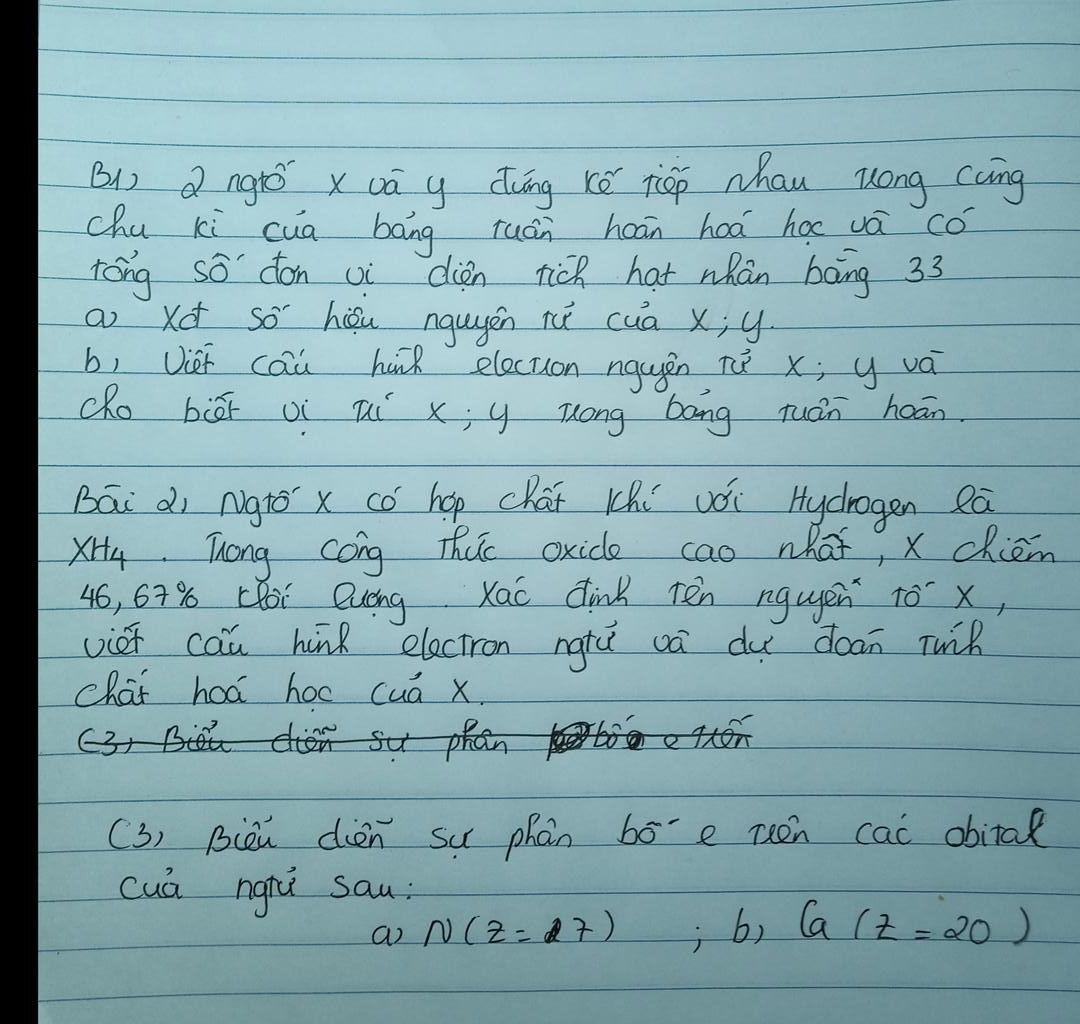 B1) 2 ngtố X và y đứng kế tiếp nhau trong cùng
chu kì của bảng tuần hoàn hoá học và có
tổng số đơn vị điện tích hạt nhân bằng 33
a) Xđ số hiệu nguyên tử của X; y.
b) Viết cấu hình electron nguyên tử X; y và
cho biết vị trí X; y trong bảng tuần hoàn.
Bài 2) Ngtố X có hợp chất khí với Hydrogen là
XH4. Trong công thức oxide cao nhất, X chiếm
46,67% khối lượng. Xác định tên nguyên tố X,
viết cấu hình electron ngtử và dự đoán tính
chất hoá học của X.
C3) Biểu diễn sự phân bố e trên
C3) Biểu diễn sự phân bố e trên các obital
của ngtử sau:
a) N (Z = 7) ; b) Ca (Z = 20)